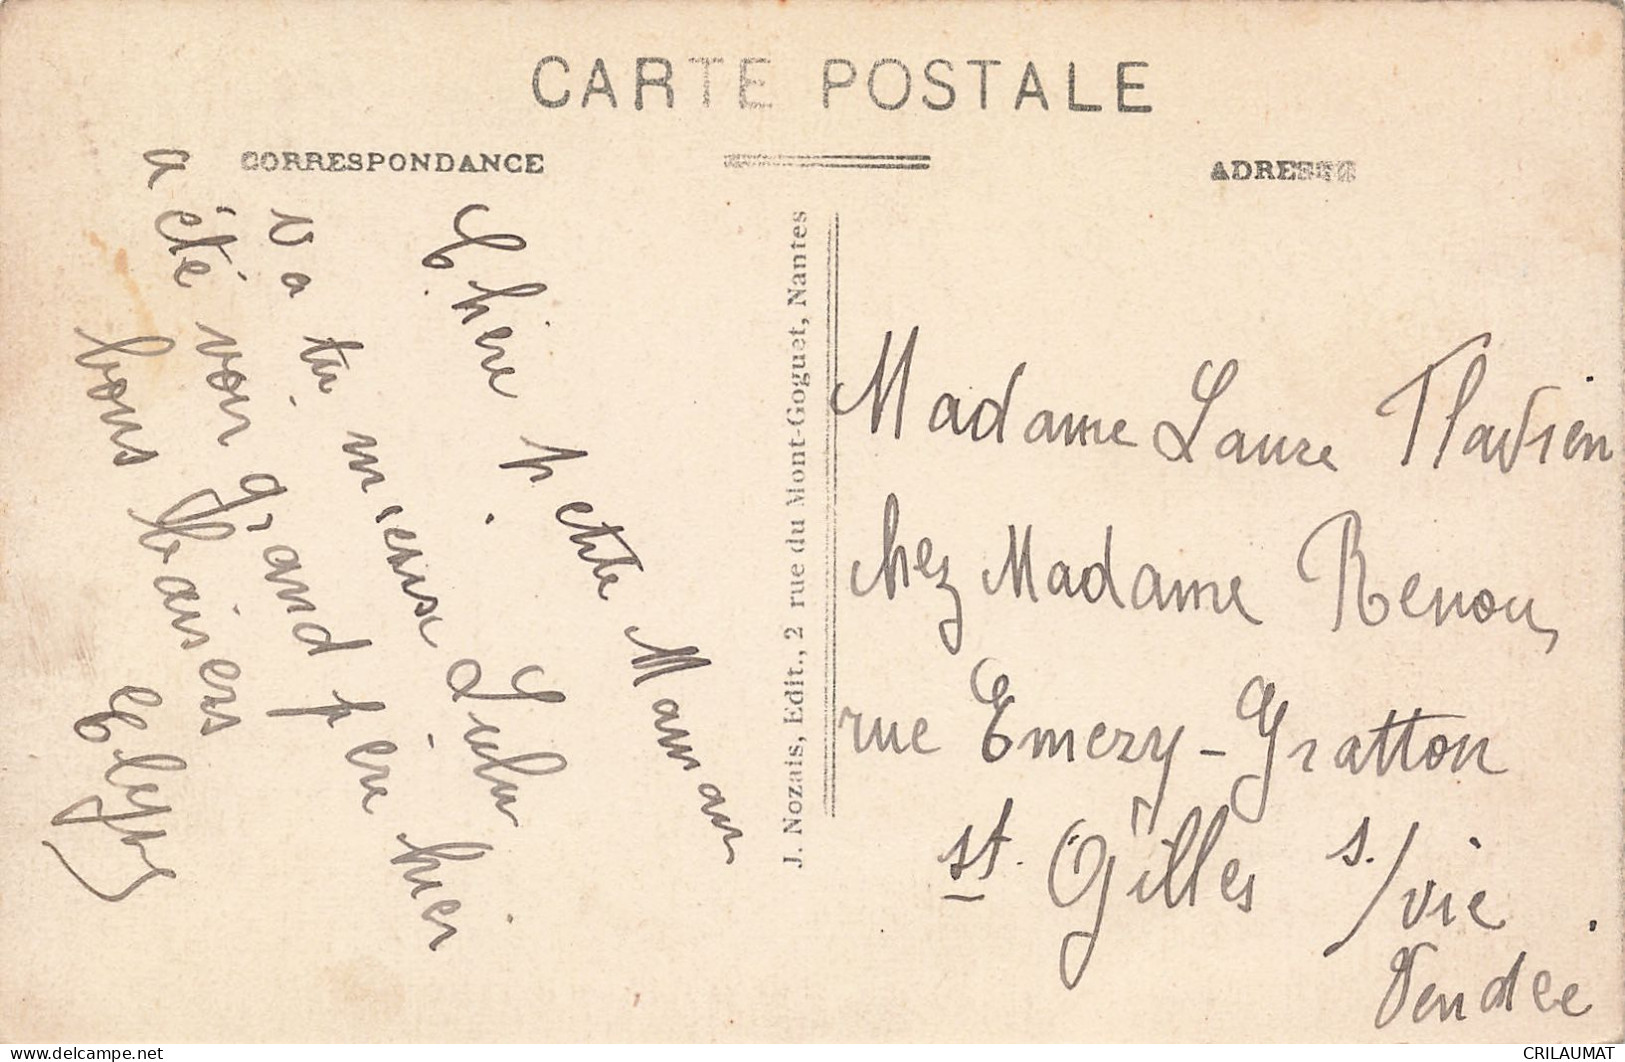 CARTE POSTALE
CORRESPONDANCE
ADRESSE
Chère petite Maman
va tu mieux Lulu
a été voir grand père hier
bons baisers
J. Nozais, Edit., 2 rue du Mont-Goguet, Nantes
Madame Laure Flavien
chez Madame Renou,
rue Emery-Gratton
st. Gilles s./vie
Vendée
CRILAUMAT